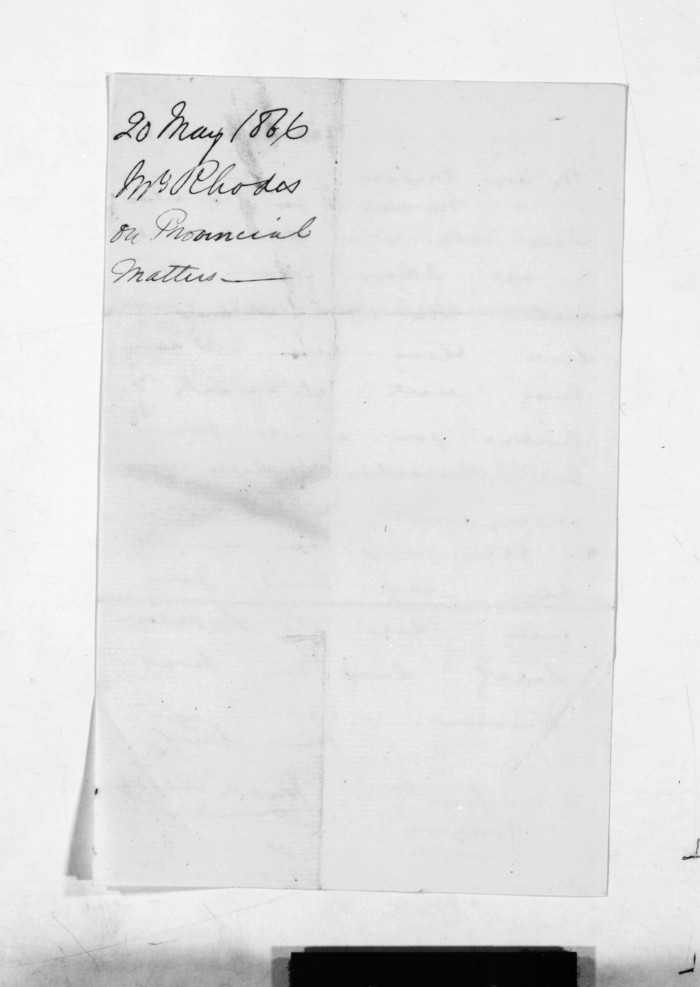 20 May 1866
Mr Rhodes
on Provincial
Matters